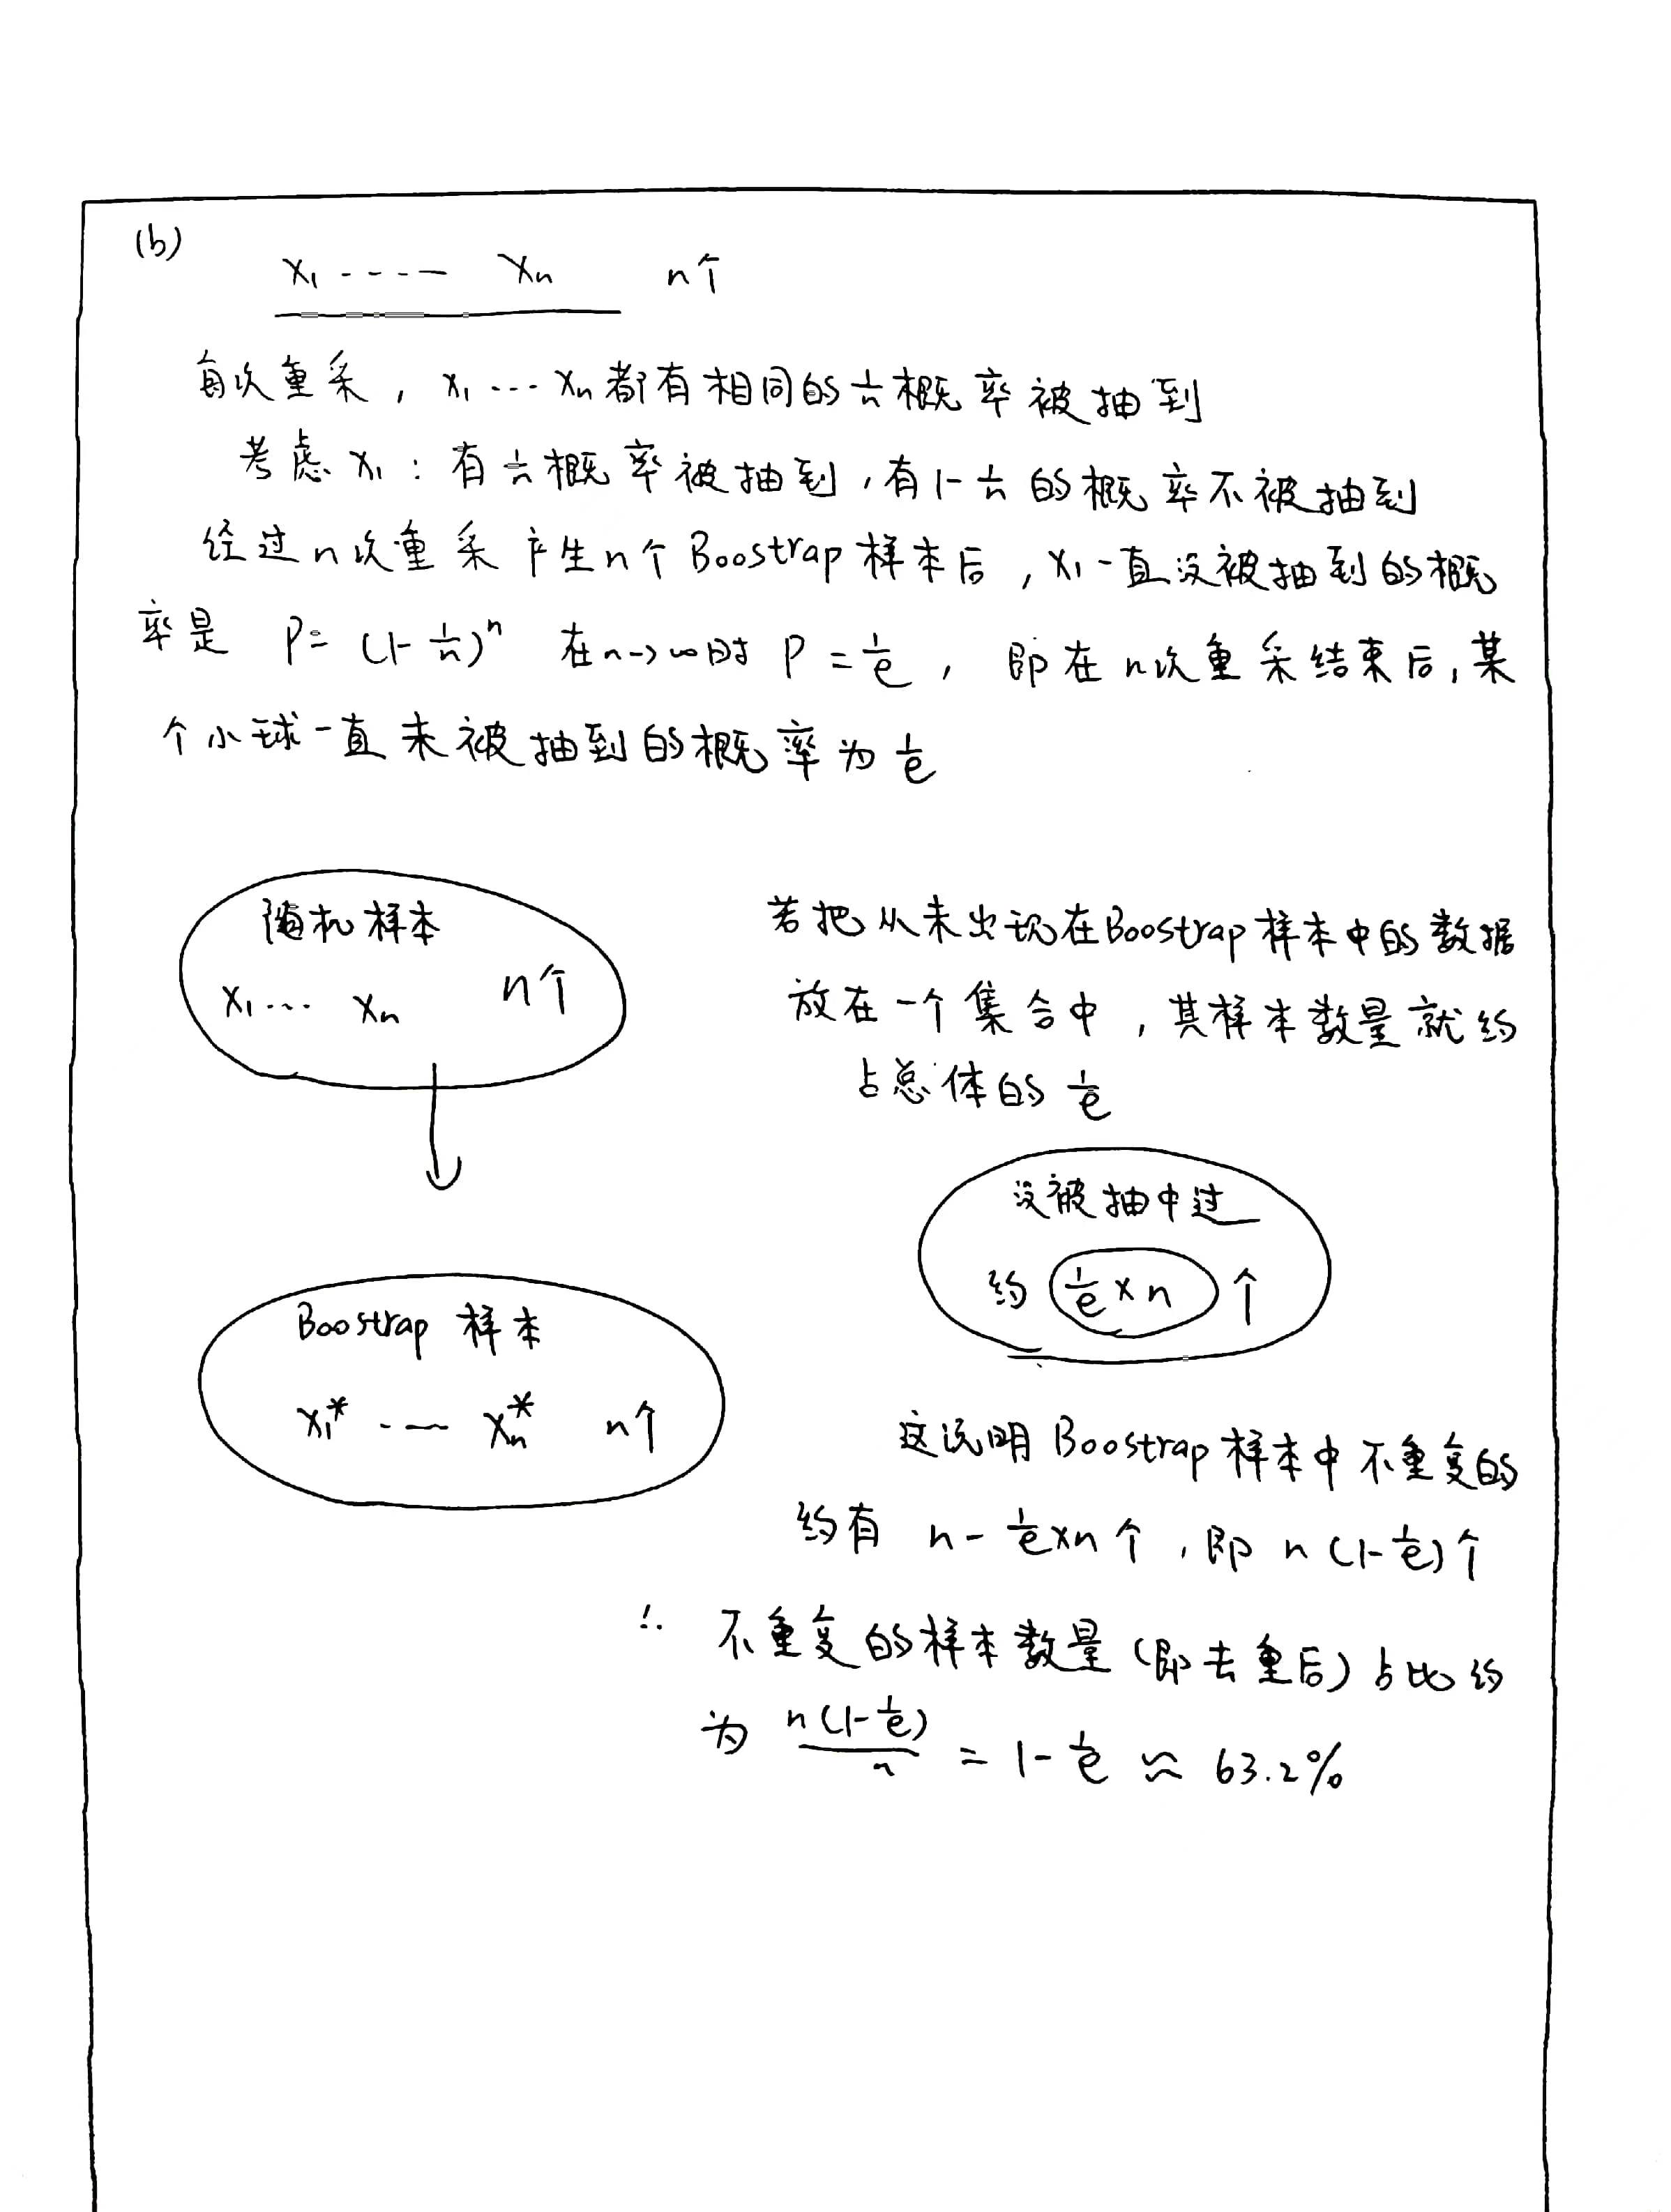 (b)
x₁ ---- xₙ n个
每次重采，x₁ … xₙ都有相同的1/n概率被抽到
考虑x₁：有1/n概率被抽到，有1-1/n的概率不被抽到
经过n次重采产生n个Boostrap样本后，x₁一直没被抽到的概
率是 P=(1-1/n)ⁿ 在n→∞时 P=1/e，即在n次重采结束后，某
个小球一直未被抽到的概率为1/e
随机样本
x₁… xₙ n个
Boostrap 样本
x₁* -— xₙ* n个
若把从未出现在Boostrap样本中的数据
放在一个集合中，其样本数量就约
占总体的1/e
没被抽中过
约 1/e×n 个
这说明Boostrap样本中不重复的
约有 n-1/e×n个，即 n(1-1/e)个
∴ 不重复的样本数量(即去重后)占比约
为 n(1-1/e)/n = 1-1/e ≈ 63.2%